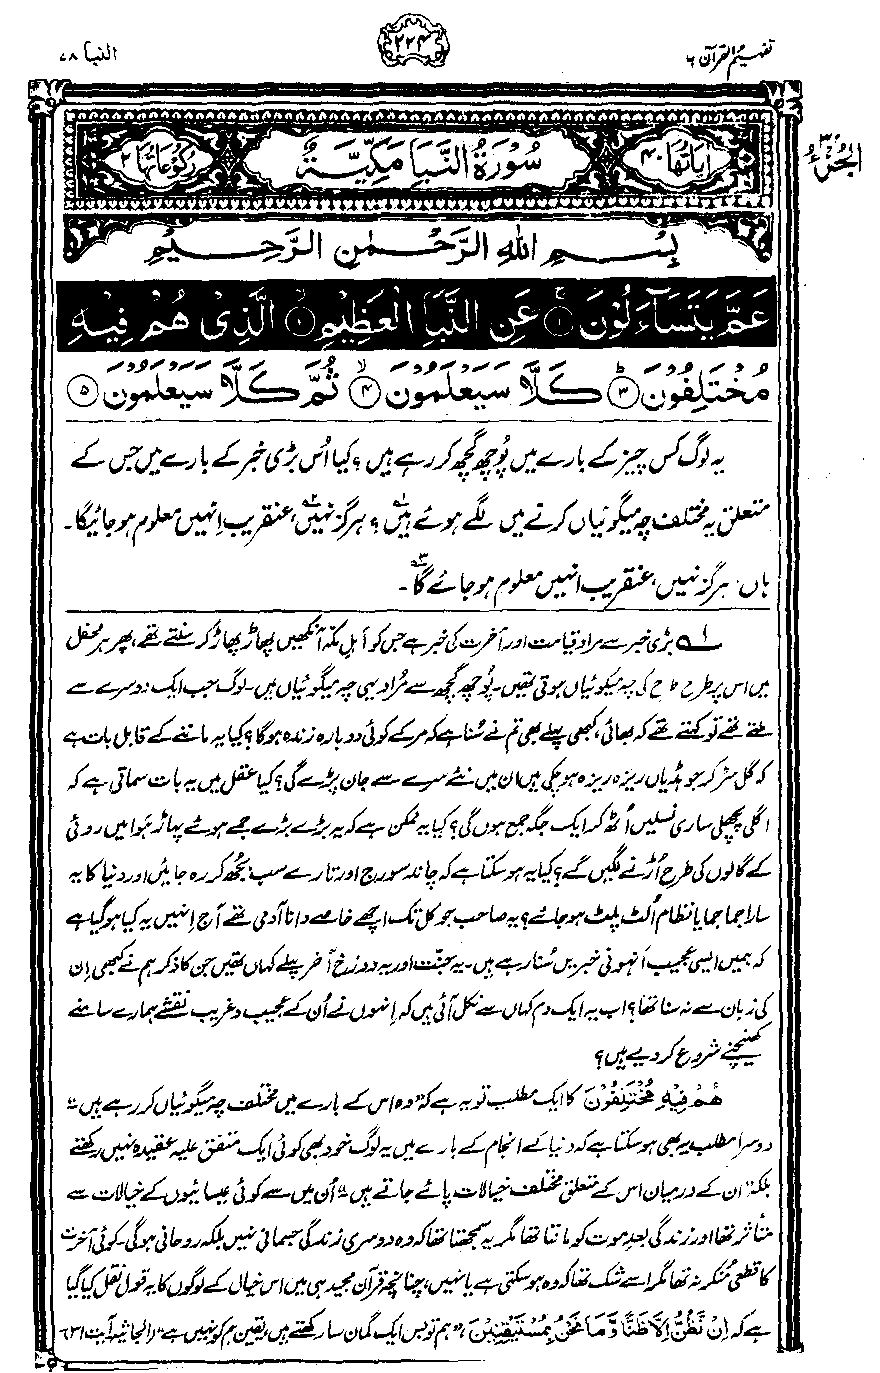 تفہیم القرآن ۶
۲۲۴
النبا ۷۸
الجزء ۳۰
اٰیاتها ۴۰
سُوْرَةُ النَّبَاِ مَكِّيَّةٌ
رکوعاتها ۲
بِسْمِ اللهِ الرَّحْمٰنِ الرَّحِيْمِ
عَمَّ يَتَسَآءَلُوْنَ ۝۱ عَنِ النَّبَاِ الْعَظِيْمِ ۝۱ الَّذِیْ هُمْ فِيْهِ
مُخْتَلِفُوْنَ ۝۳ كَلَّا سَيَعْلَمُوْنَ ۝۴ ثُمَّ كَلَّا سَيَعْلَمُوْنَ ۝۵
یہ لوگ کس چیز کے بارے میں پُوچھ گچھ کر رہے ہیں؟ کیا اُس بڑی خبر کے بارے میں جس کے
متعلق یہ مختلف چہ میگوئیاں کرنے میں لگے ہوئے ہیں۱؟ ہرگز نہیں۲، عنقریب اِنہیں معلوم ہو جائیگا۔
ہاں، ہرگز نہیں، عنقریب انہیں معلوم ہو جائے گا۳۔
۱ بڑی خبر سے مراد قیامت اور آخرت کی خبر ہے جس کو اہلِ مکہ آنکھیں پھاڑ پھاڑ کر سنتے تھے، پھر ہر محفل
میں اس پر طرح طرح کی چہ میگوئیاں ہوتی تھیں۔ پُوچھ گچھ سے مُراد یہی چہ میگوئیاں ہیں۔ لوگ جب ایک دوسرے سے
ملتے تھے تو کہتے تھے کہ بھائی، کبھی پہلے بھی تم نے سُنا ہے کہ مر کے کوئی دوبارہ زندہ ہوگا؟ کیا یہ ماننے کے قابل بات ہے
کہ گل سڑ کر جو ہڈیاں ریزہ ریزہ ہو چکی ہیں ان میں نئے سرے سے جان پڑے گی؟ کیا عقل میں یہ بات سماتی ہے کہ
اگلی پچھلی ساری نسلیں اُٹھ کر ایک جگہ جمع ہوں گی؟ کیا یہ ممکن ہے کہ یہ بڑے بڑے جمے ہوئے پہاڑ ہَوا میں روئی
کے گالوں کی طرح اُڑنے لگیں گے؟ کیا یہ ہو سکتا ہے کہ چاند سورج اور تارے سب بُجھ کر رہ جائیں اور دنیا کا یہ
سارا جما جمایا نظام اُلٹ پلٹ ہو جائے؟ یہ صاحب جو کل تک اچھے خاصے دانا آدمی تھے آج اِنہیں یہ کیا ہو گیا ہے
کہ ہمیں ایسی عجیب اَنہونی خبریں سُنا رہے ہیں۔ یہ جنّت اور یہ دوزخ آخر پہلے کہاں تھیں جن کا ذکر ہم نے کبھی اِن
کی زبان سے نہ سنا تھا؟ اب یہ ایک دم کہاں سے نکل آئی ہیں کہ اِنہوں نے اُن کے عجیب و غریب نقشے ہمارے سامنے
کھینچنے شروع کر دیے ہیں؟
هُمْ فِيْهِ مُخْتَلِفُوْنَ کا ایک مطلب تو یہ ہے کہ "وہ اس کے بارے میں مختلف چہ میگوئیاں کر رہے ہیں"
دوسرا مطلب یہ بھی ہو سکتا ہے کہ دنیا کے انجام کے بارے میں یہ لوگ خود بھی کوئی ایک متفق علیہ عقیدہ نہیں رکھتے
بلکہ "ان کے درمیان اس کے متعلق مختلف خیالات پائے جاتے ہیں" اُن میں سے کوئی عیسائیوں کے خیالات سے
متأثر تھا اور زندگی بعدِ موت کو مانتا تھا مگر یہ سمجھتا تھا کہ وہ دوسری زندگی جسمانی نہیں بلکہ روحانی ہوگی۔ کوئی آخرت
کا قطعی مُنکر نہ تھا مگر اسے شک تھا کہ وہ ہو سکتی ہے یا نہیں، چنانچہ قرآن مجید ہی میں اس خیال کے لوگوں کا یہ قول نقل کیا گیا
ہے کہ اِنْ نَّظُنُّ اِلَّا ظَنًّا وَّمَا نَحْنُ بِمُسْتَيْقِنِيْنَ، "ہم تو بس ایک گمان سا رکھتے ہیں، یقین ہم کو نہیں ہے" (الجاثیہ آیت ۳۲)